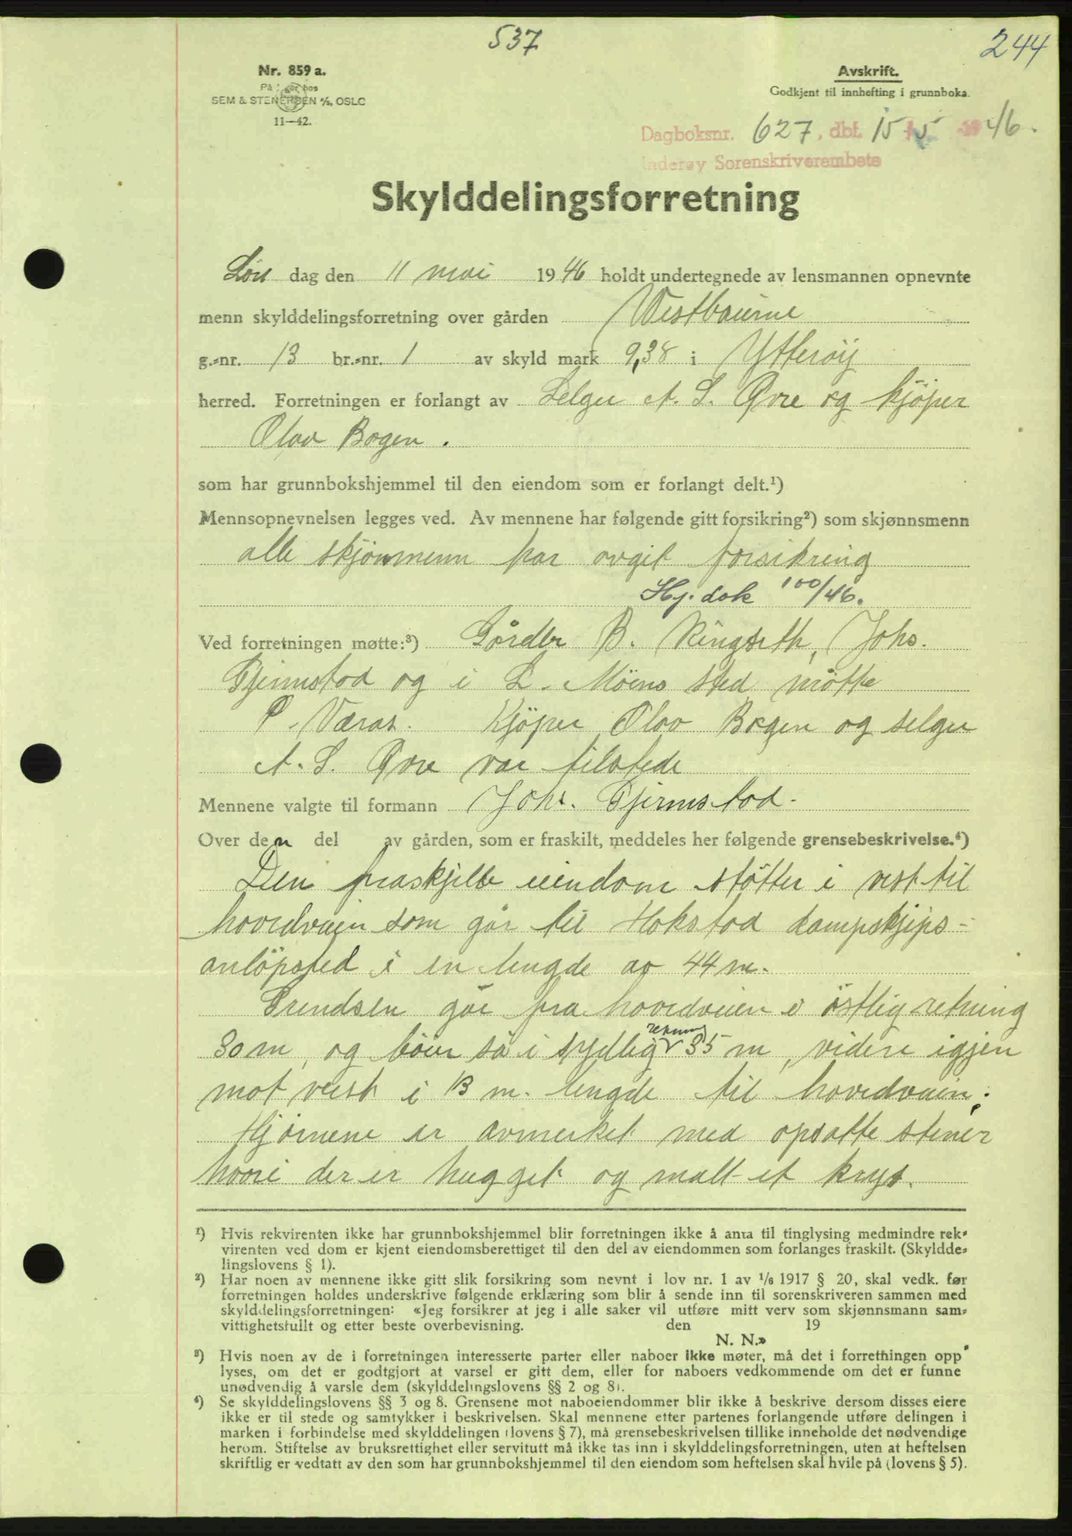 537
244
Nr. 859 a.
På lager hos
SEM & STENERSEN A/S, OSLO
11—42.
Avskrift.
Godkjent til innhefting i grunnboka.
Dagboksnr. 627, dbf. 15-5 1946.
Inderøy Sorenskriverembete
Skylddelingsforretning
Lør dag den 11 mai 1946 holdt undertegnede av lensmannen opnevnte
menn skylddelingsforretning over gården Westbourne
g.-nr. 13 br.-nr. 1 av skyld mark 9,38 i Ytterøy
herred. Forretningen er forlangt av Selger A. S. Øvre og kjøper
Olav Bogen.
som har grunnbokshjemmel til den eiendom som er forlangt delt.¹)
Mennsopnevnelsen legges ved. Av mennene har følgende gitt forsikring²) som skjønnsmenn
alle skjønmenn har avgit forsikring
Hj. dok 100/46.
Ved forretningen møtte:³) Gårdbr B. Ringseth, Johs.
Gjermstad og i L. Møens sted møtte
P. Væras. Kjöper Olav Bogen og selger
A. S. Øvre var tilstede
Mennene valgte til formann Johs. Gjermstad.
Over den del av gården, som er fraskilt, meddeles her følgende grensebeskrivelse.⁴)
Den fraskjelte eiendom støtter i vest til
hovedveien som går til Hokstad dampskjips-
anlöpsted i en lengde av 44 m.
Grendsen går fra hovedveien i östlig retning
30 m, og böier så i sydlig retning 35 m, videre igjen
mot vest i 13 m. lengde til hovedveien.
Hjörnene er avmerket med opsatte stener
hvori der er hugget og malt et krys.
¹) Hvis rekvirenten ikke har grunnbokshjemmel blir forretningen ikke å anta til tinglysing medmindre rek-
virenten ved dom er kjent eiendomsberettiget til den del av eiendommen som forlanges fraskilt. (Skyldde-
lingslovens § 1).
²) Har noen av mennene ikke gitt slik forsikring som nevnt i lov nr. 1 av 1/6 1917 § 20, skal vedk. før
forretningen holdes underskrive følgende erklæring som blir å sende inn til sorenskriveren sammen med
skylddelingsforretningen: «Jeg forsikrer at jeg i alle saker vil utføre mitt verv som skjønnsmann sam-
vittighetsfullt og etter beste overbevisning. den 19
N. N.»
³) Hvis noen av de i forretningen interesserte parter eller naboer ikke møter, må det i forrethingen opp
lyses, om det er godtgjort at varsel er gitt dem, eller for naboers vedkommende om det er funne
unødvendig å varsle dem (skylddelingslovens §§ 2 og 8).
⁴) Se skylddelingslovens §§ 3 og 8. Grensene mot naboeiendommer blir ikke å beskrive dersom disses eiere
ikke er til stede og samtykker i beskrivelsen. Skal mennene etter partenes forlangende utføre delingen i
marken i forbindelse med skylddelingen (lovens § 7), må grensebeskrivelsen tillike inneholde det nødvendige
herom. Stiftelse av bruksrettighet eller servitutt må ikke tas inn i skylddelingsforretningen, uten at heftelsen
skriftlig er vedtatt av den som har grunnbokshjemmel til den eiendom som heftelsen skal hvile på (lovens § 5).